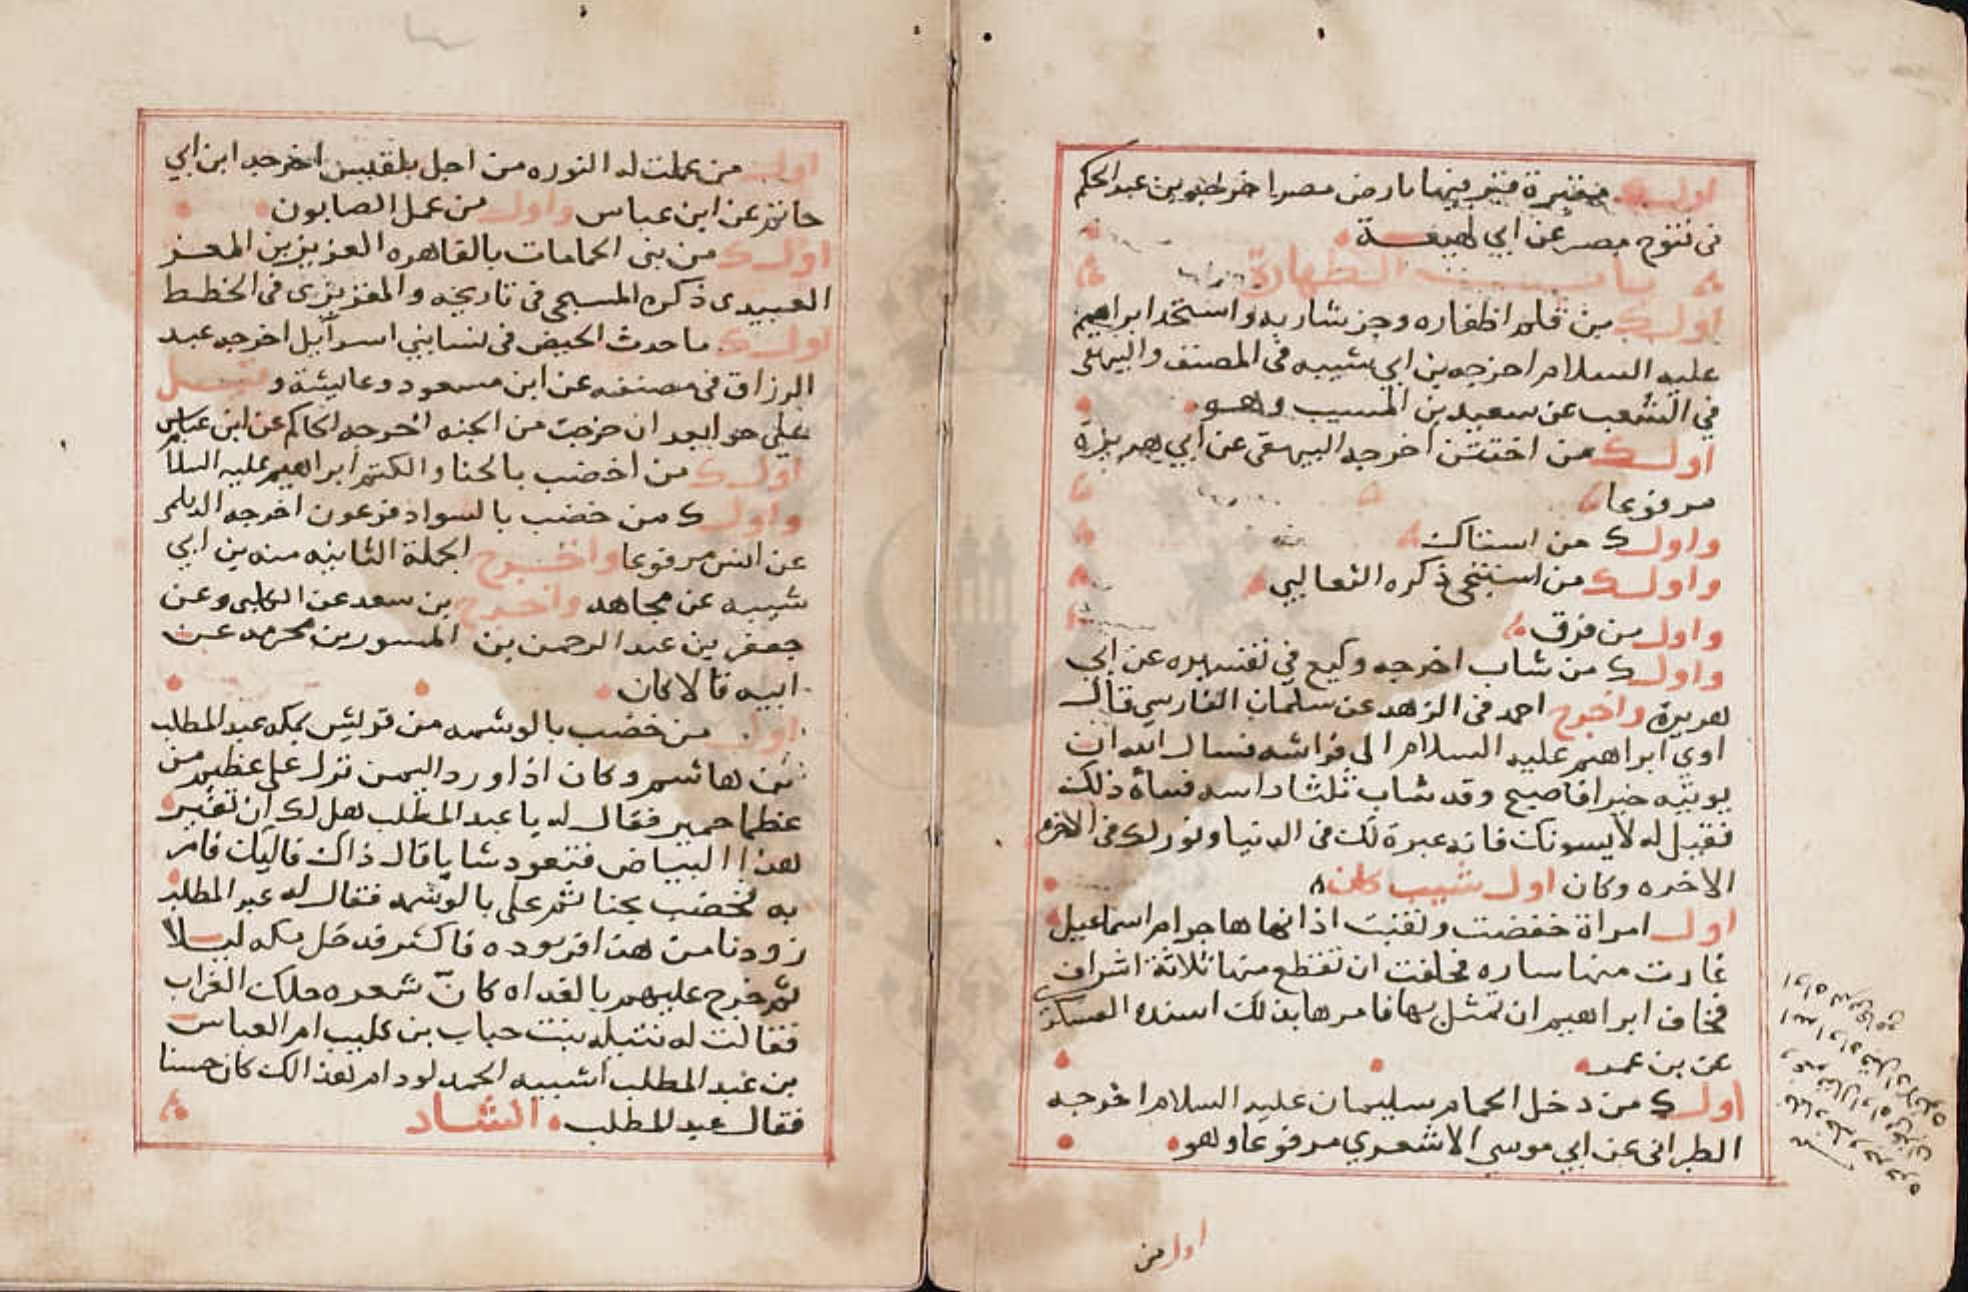 اول مقبرة قبر فيها بارض مصر اخرجه بن عبد الحكم
فى فتوح مصر عن ابي لهيعة
باب الطهارة
اول من قلم اظفاره وجز شاربه واستحد ابراهيم
عليه السلام اخرجه بن ابي شيبه فى المصنف والبيهقى
في الشعب عن سعيد بن المسيب وهو
اول من اختتن اخرجه البيهقى عن ابي هريرة
مرفوعا
واول من استاك
واول من استنجى ذكره الثعالبي
واول من فرق
واول من شاب اخرجه وكيع في تفسيره عن ابي
هريرة واخرج احمد فى الزهد عن سلمان الفارسي قال
اوي ابراهيم عليه السلام الى فراشه فسال الله ان
يوتيه خيرا فاصبح وقد شاب ثلثا راسه فساه ذلك
فقيل له لا يسونك فانه عبرة لك فى الدنيا ونور لك فى الاخره
الاخره وكان اول شيب كان
اول امراة خفضت وثقبت اذانها هاجر ام اسماعيل
غارت منها ساره فحلفت ان تقطع منها ثلاثة اشراف
فخاف ابراهيم ان تمثل بها فامرها بذلك اسنده العسكرى
عن بن عمر
اول من دخل الحمام سليمان عليه السلام اخرجه
الطبرانى عن ابي موسي الاشعري مرفوعا وهو
اول من
اول من عملت له النوره من اجل بلقيس اخرجه ابن ابي
حاتم عن ابن عباس واول من عمل الصابون
اول من بنى الحمامات بالقاهره العزيز بن المعز
العبيدى ذكره المسبحى فى تاريخه والمقريزى فى الخطط
اول ما حدث الحيض فى نسا بني اسرآئيل اخرجه عبد
الرزاق فى مصنفه عن ابن مسعود وعايشة وقيل
على حوا بعد ان خرجت من الجنه اخرجه الحاكم عن ابن عباس
اول من اخضب بالحنا والكتم ابراهيم عليه السلام
واول من خضب بالسواد فرعون اخرجه الديلمى
عن انس مرفوعا واخرج الجملة الثانيه منه بن ابي
شيبه عن مجاهد واخرج بن سعد عن الكلبى وعن
جعفر بن عبد الرحمن بن المسور بن مخرمه عن
ابيه قالا كان
اول من خضب بالوشمه من قريش بمكه عبد المطلب
بن هاشم وكان اذا ورد اليمن نزل على عظيم من
عظما حمير فقال له يا عبد المطلب هل لك ان تغير
هذا البياض فتعود شابا قال ذاك اليك فامر
به فخضب بحنا ثم على بالوشمه فقال له عبد المطلب
زودنا من هذا فزوده فاكثر فدخل مكه ليلا
ثم خرج عليهم بالغداه كان شعره حلك الغراب
فقالت له نتيله بنت حباب بن كليب ام العباس
بن عبد المطلب اشيبه الحمد لو دام لهذا لك كان حسنا
فقال عبد المطلب انشاد